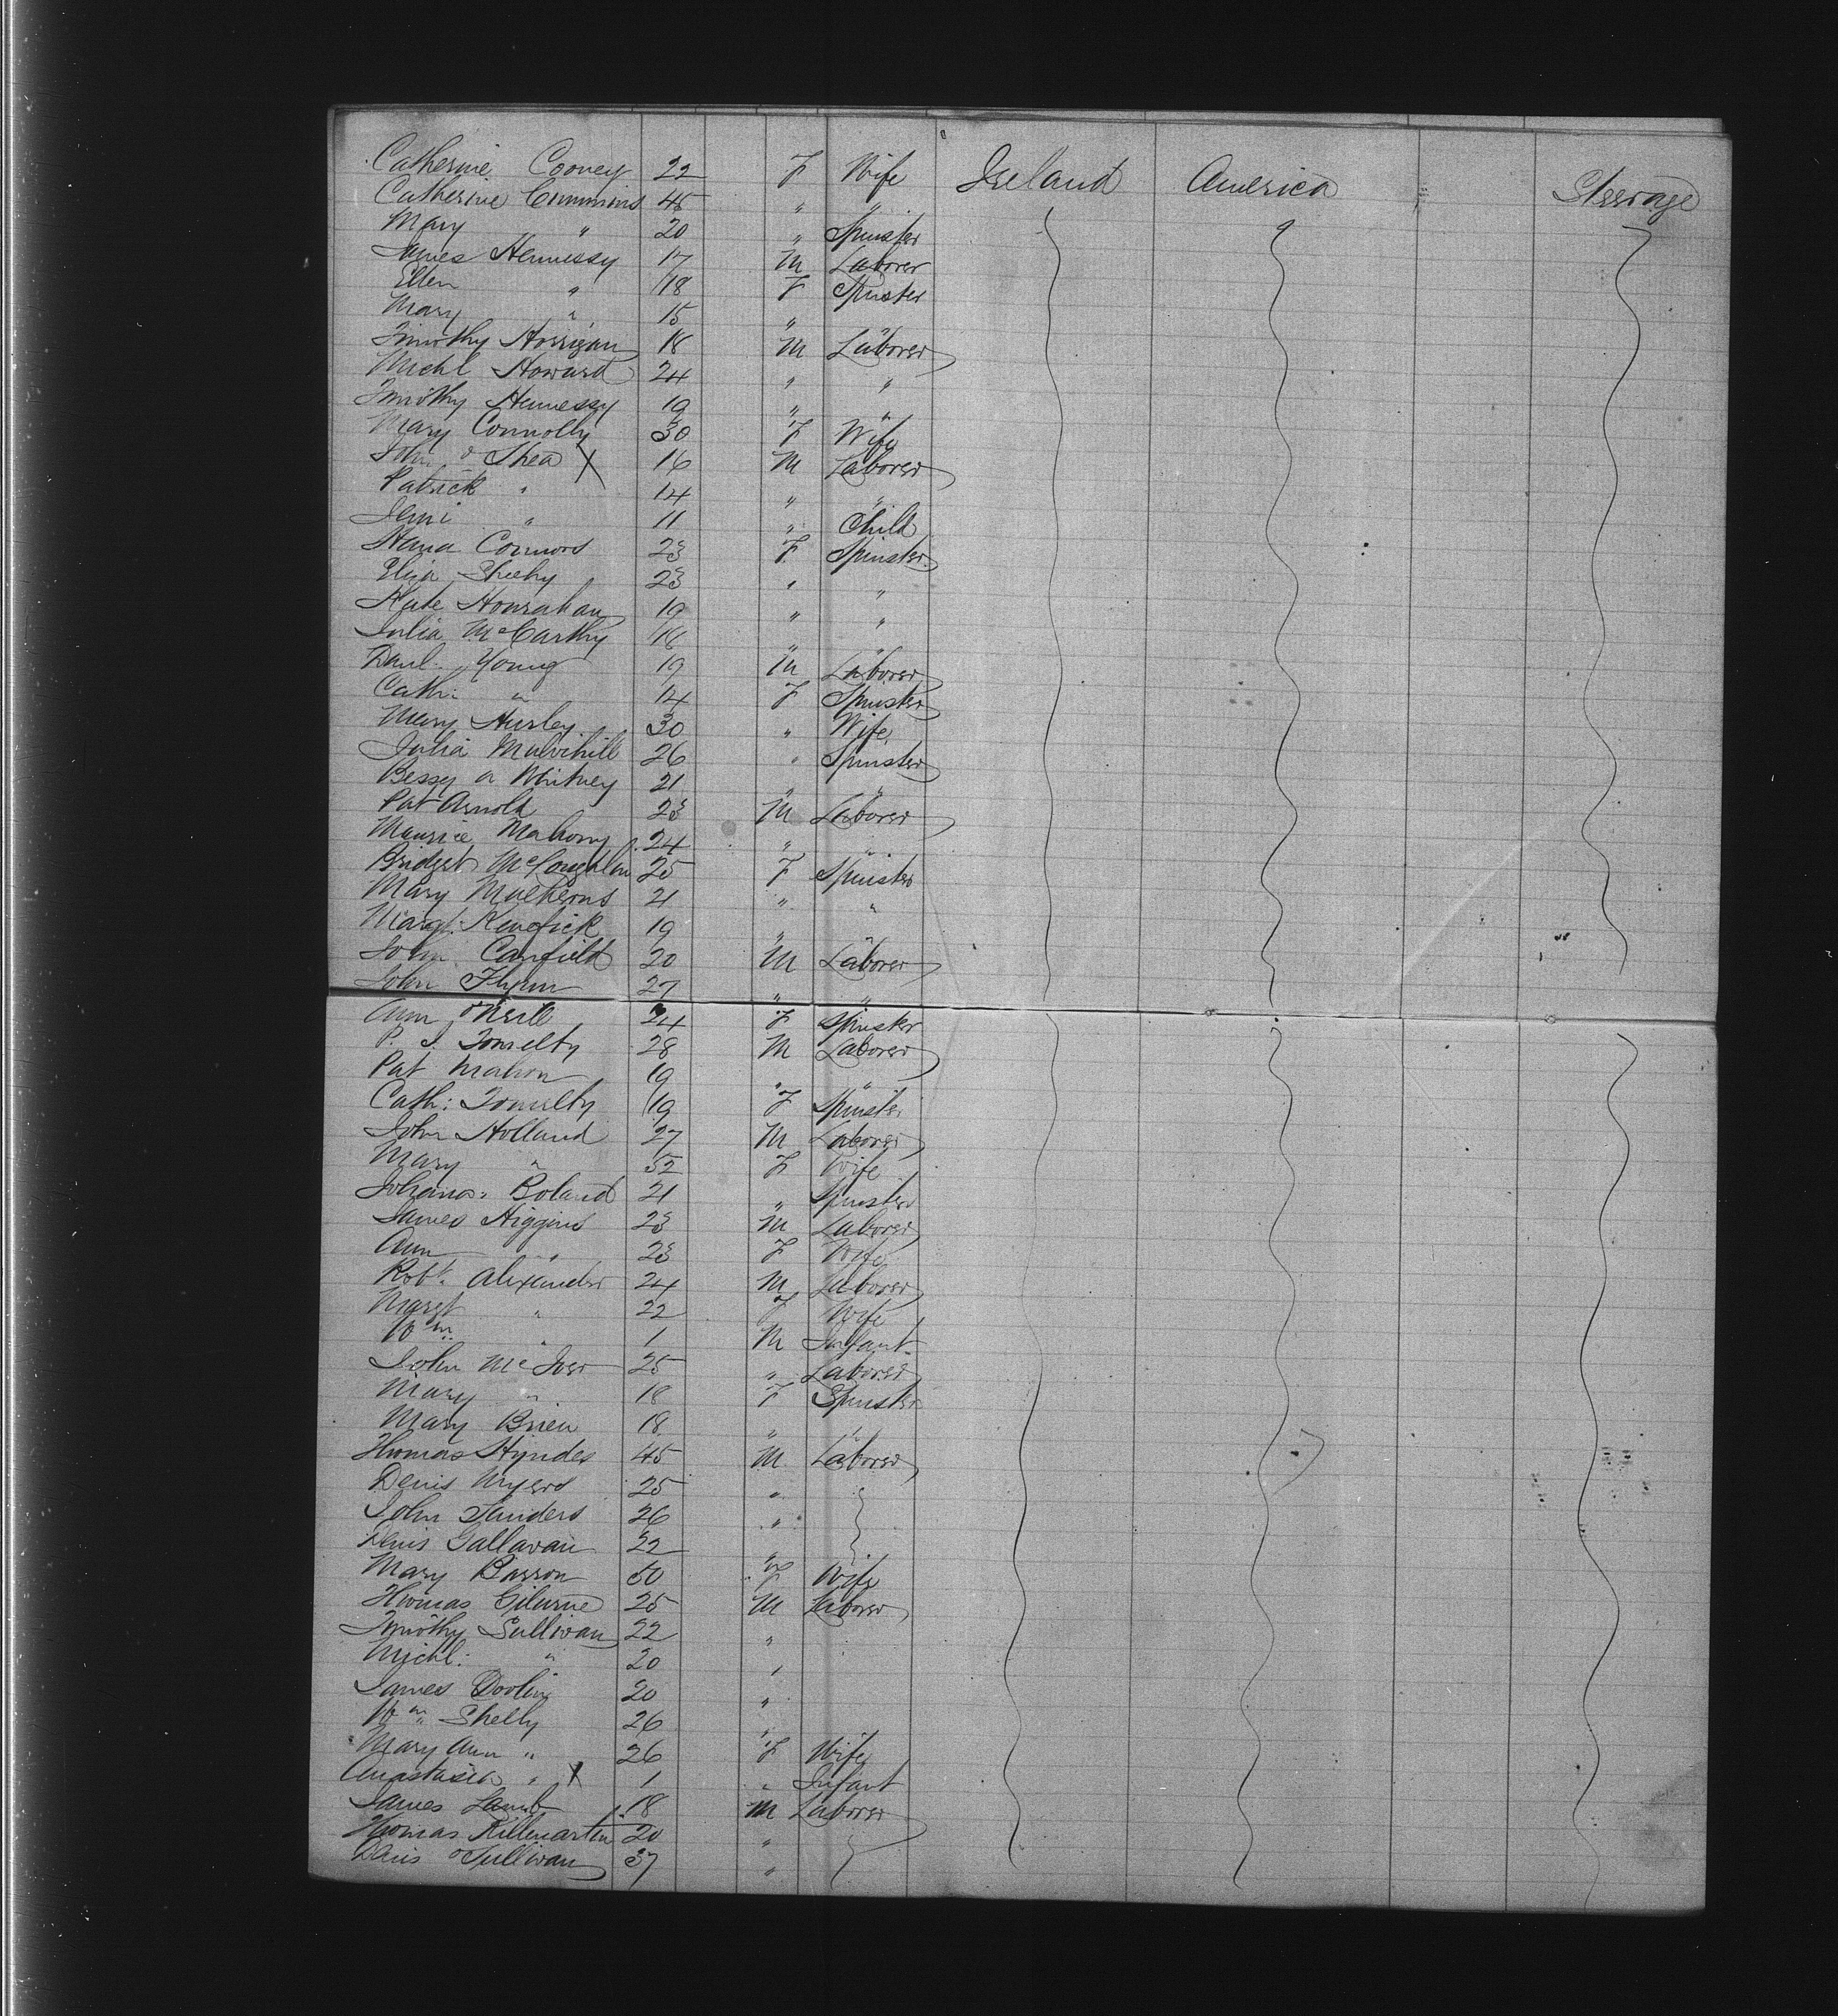 Catherine Cooney 22 F Wife Ireland America Steerage
Catherine Cummins 45 " "
Mary " 20 " Spinster
James Hennessy 17 M Laborer
Ellen " 18 F Spinster
Mary " 15 " "
Timothy Horrigan 18 M Laborer
Michl Howard 24 " "
Timothy Hennessy 19 " "
Mary Connolly 30 F Wife
John O Shea X 16 M Laborer
Patrick " 14 " "
Jemi " 11 " Child
Hana Connors 23 F Spinster
Eliza Sheehy 23 " "
Kate Hourahan 19 " "
Julia McCarthy 16 " "
Danl. Young 19 M Laborer
Cath: " 14 F Spinster
Mary Hurley 30 " Wife
Julia Mulvihill 26 " Spinster
Bessy a Whitney 21 " "
Pat Arnold 23 M Laborer
Maurice Mahony 24 " "
Bridget McCoughlin 25 F Spinster
Mary Mulkerns 21 " "
Margt. 19 "
John Canfield 20 M Laborer
John Flynn 27 " "
Ann O'Neill 24 F Spinster
P. J. Tomelty 28 M Laborer
Pat Mahon 19 " "
Cath: Tomelty 19 F Spinster
John Holland 27 M Laborer
Mary " 52 F Wife
Johana Boland 21 " Spinster
James Higgins 23 M Laborer
Ann " 23 F Wife
Robt. Alexander 24 M Laborer
Margt " 22 F Wife
Wm. " 1 M Infant
John McIver 25 " Laborer
Mary " 18 F Spinster
Mary Brien 18 " "
Thomas Hyndes 45 M Laborer
Denis Myers 25 "
John Sanders 26 "
Denis Gallavan 22 "
Mary Barron 50 F Wife
Thomas 25 M Laborer
Timothy Sullivan 22 "
Michl: " 20 "
James Dooling 20 "
Wm. Shelly 26 "
Mary Ann " 26 F Wife
Anastasia " X 1 " Infant
James Lamb 18 M Laborer
Thomas Killemartin 20 "
Denis O'Sullivan 37 "